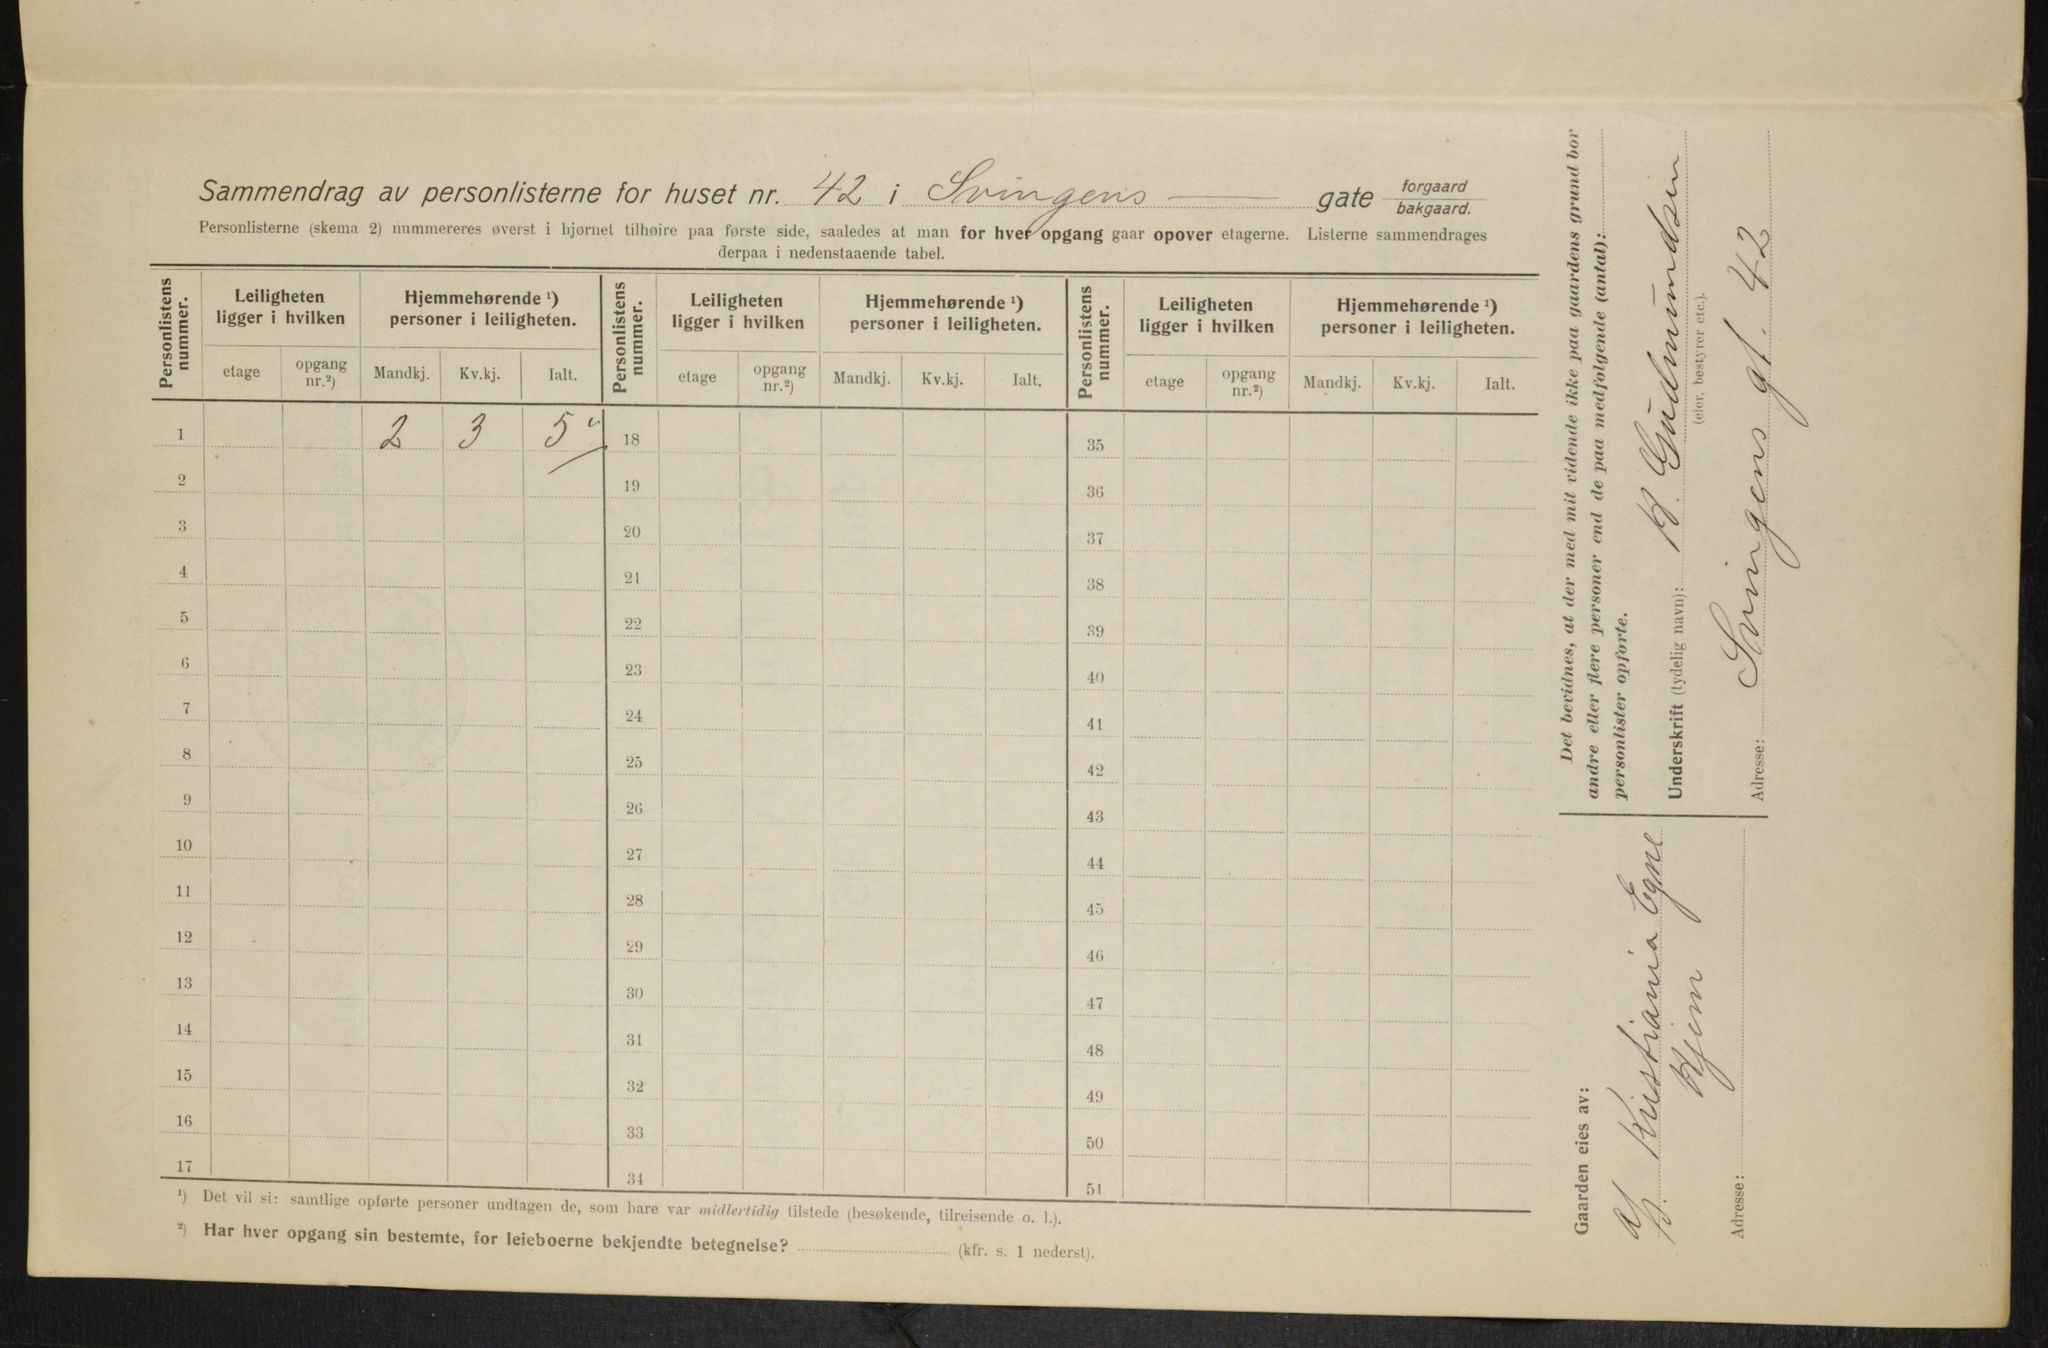 Sammendrag av personlisterne for huset nr. 42 i Svingens gate forgaard bakgaard.
Personlisterne (skema 2) nummereres øverst i hjørnet tilhøire paa første side, saaledes at man for hver opgang gaar opover etagerne. Listerne sammendrages
derpaa i nedenstaaende tabel.
Personlistens nummer. Leiligheten ligger i hvilken Hjemmehørende ¹) personer i leiligheten. Personlistens nummer. Leiligheten ligger i hvilken Hjemmehørende ¹) personer i leiligheten. Personlistens nummer. Leiligheten ligger i hvilken Hjemmehørende ¹) personer i leiligheten.
etage opgang nr.²) Mandkj. Kv.kj. Ialt. etage opgang nr.²) Mandkj. Kv.kj. Ialt. etage opgang nr.²) Mandkj. Kv.kj. Ialt.
1 2 3 5 18 35
2 19 36
3 20 37
4 21 38
5 22 39
6 23 40
7 24 41
8 25 42
9 26 43
10 27 44
11 28 45
12 29 46
13 30 47
14 31 48
15 32 49
16 33 50
17 34 51
¹) Det vil si: samtlige opførte personer undtagen de, som bare var midlertidig tilstede (besøkende, tilreisende o. l.).
²) Har hver opgang sin bestemte, for leieboerne bekjendte betegnelse? (kfr. s. 1 nederst).
Det bevidnes, at der med mit vidende ikke paa gaardens grund bor
andre eller flere personer end de paa medfølgende (antal):
personlister opførte.
Underskrift (tydelig navn): K. Gudmundsen
(eier, bestyrer etc.).
Adresse: Svingens gt. 42
Gaarden eies av:
Kristiania Egne
Hjem
Adresse: